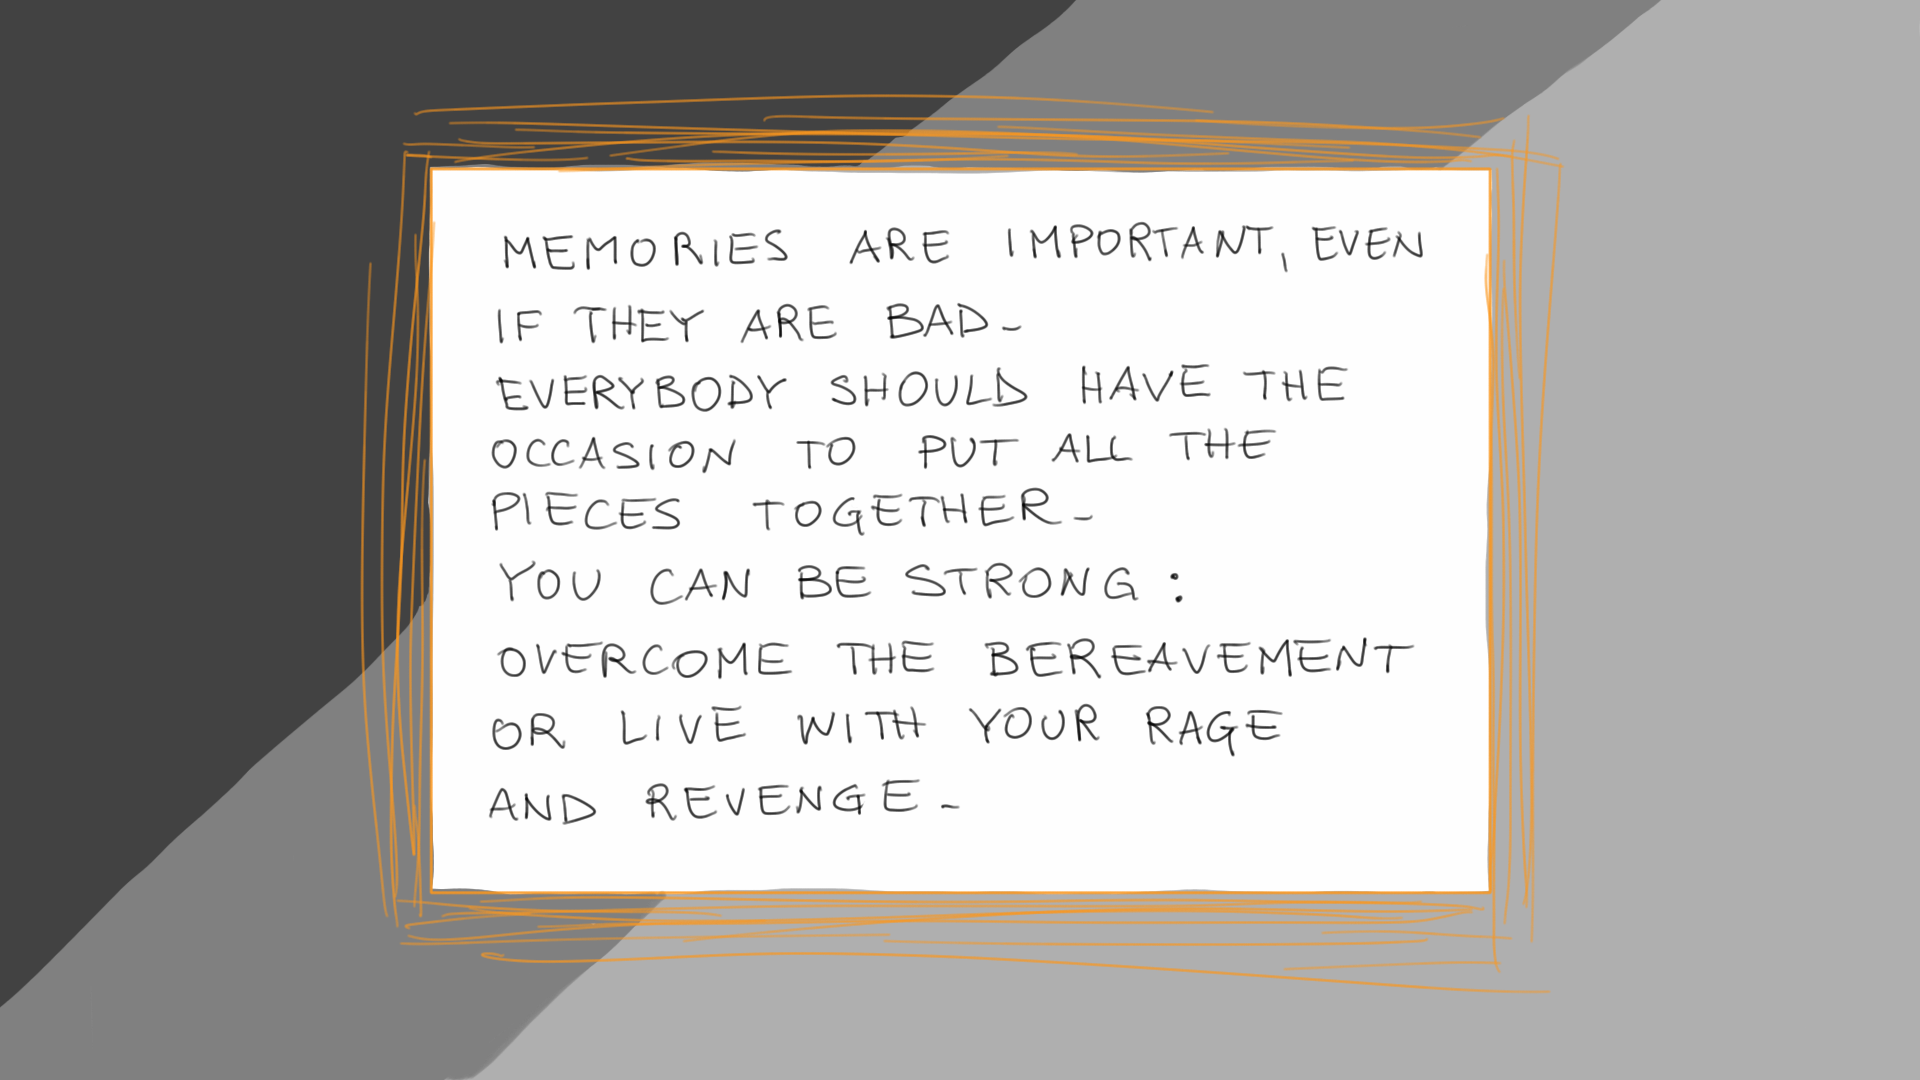 MEMORIES ARE IMPORTANT, EVEN
IF THEY ARE BAD-
EVERYBODY SHOULD HAVE THE
OCCASION TO PUT ALL THE
PIECES TOGETHER-
YOU CAN BE STRONG:
OVERCOME THE BEREAVEMENT
OR LIVE WITH YOUR RAGE
AND REVENGE-